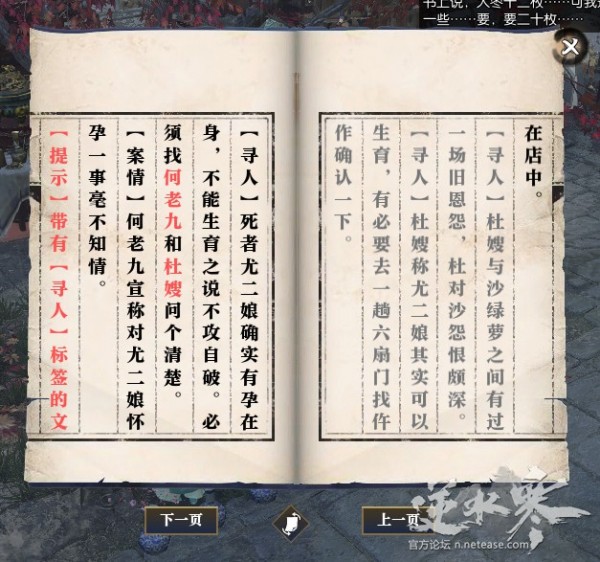 书上说，人冬十二枚……可我
一些……要，要二十枚……
在店中。
【寻人】杜嫂与沙绿萝之间有过
一场旧恩怨，杜对沙怨恨颇深。
【寻人】杜嫂称尤二娘其实可以
生育，有必要去一趟六扇门找仵
作确认一下。
【寻人】死者尤二娘确实有孕在
身，不能生育之说不攻自破。必
须找何老九和杜嫂问个清楚。
【案情】何老九宣称对尤二娘怀
孕一事毫不知情。
【提示】带有【寻人】标签的文
下一页
上一页
逆水寒
官方论坛 n.netease.com